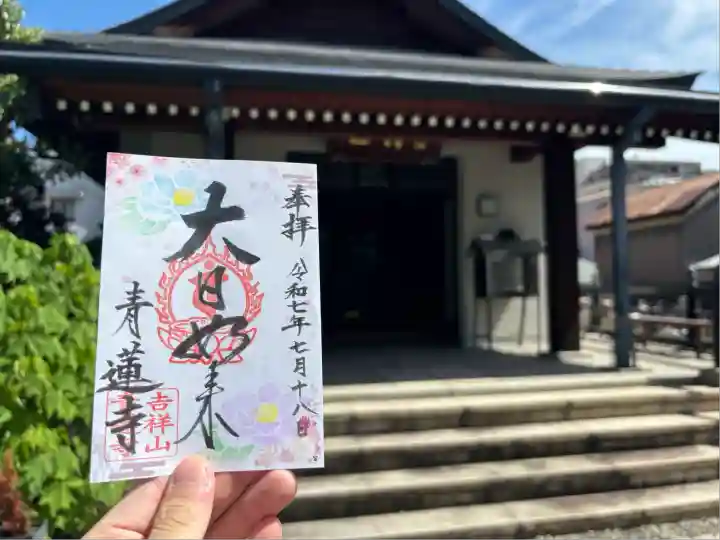 奉拝
令和七年七月十八日
大日如来
青蓮寺
吉祥山